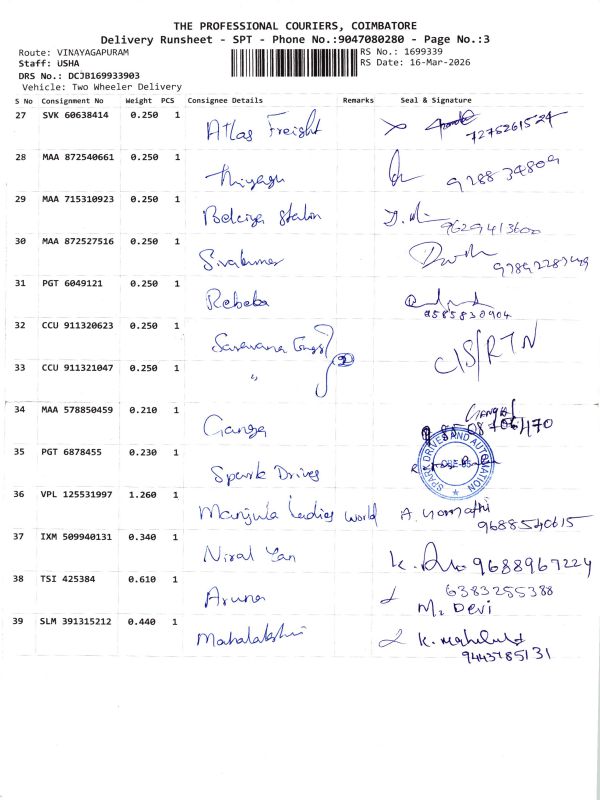 THE PROFESSIONAL COURIERS, COIMBATORE
Delivery Runsheet - SPT - Phone No.:9047080280 - Page No.:3
Route: VINAYAGAPURAM RS No.: 1699339
Staff: USHA RS Date: 16-Mar-2026
DRS No.: DCJB169933903
Vehicle: Two Wheeler Delivery
S No Consignment No Weight PCS Consignee Details Remarks Seal & Signature
27 SVK 60638414 0.250 1 Atlas Freight 7275261524
28 MAA 872540661 0.250 1 Thiyagu 9288 34809
29 MAA 715310923 0.250 1 Stalin 9629413600
30 MAA 872527516 0.250 1 Sivakumar
31 PGT 6049121 0.250 1 Rebeba 9585830904
32 CCU 911320623 0.250 1 Saravana 2 CIS/RTN
33 CCU 911321047 0.250 1 "
34 MAA 578850459 0.210 1 Ganga
35 PGT 6878455 0.230 1 Spark Drives SPARK DRIVES AND AUTOMATION
36 VPL 125531997 1.260 1 Manjula ladies world A. Gomathi
9688540615
37 IXM 509940131 0.340 1 Niral Yan K. 9688967224
38 TSI 425384 0.610 1 Aruna 6383255388
M. Devi
39 SLM 391315212 0.440 1 Mahalakshmi K.
9443785131